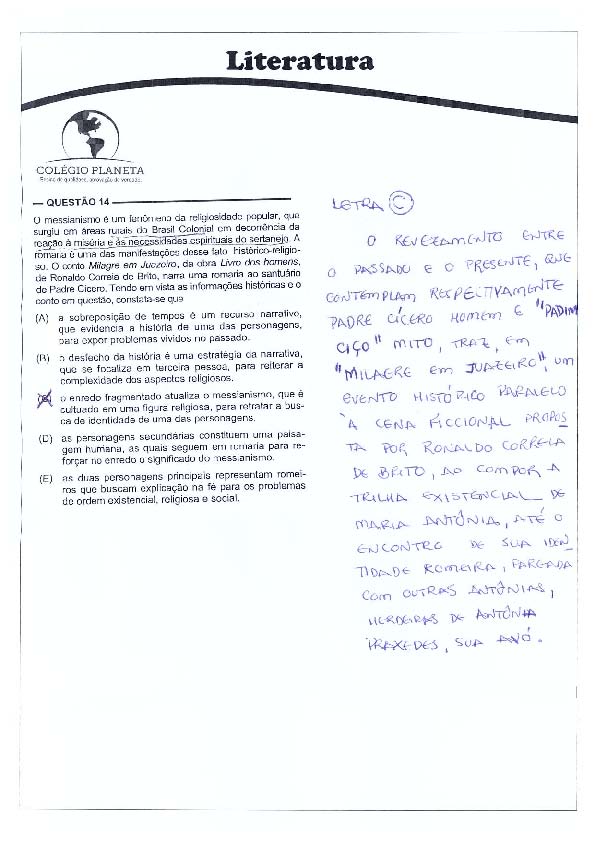 Literatura
COLÉGIO PLANETA
Ensino de qualidade, aprovação de verdade.
QUESTÃO 14
O messianismo é um fenômeno da religiosidade popular, que
surgiu em áreas rurais do Brasil Colonial em decorrência da
reação à miséria e às necessidades espirituais do sertanejo. A
romaria é uma das manifestações desse fato histórico-religio-
so. O conto Milagre em Juazeiro, da obra Livro dos homens,
de Ronaldo Correia de Brito, narra uma romaria ao santuário
de Padre Cícero. Tendo em vista as informações históricas e o
conto em questão, constata-se que
(A) a sobreposição de tempos é um recurso narrativo,
que evidencia a história de uma das personagens,
para expor problemas vividos no passado.
(B) o desfecho da história é uma estratégia da narrativa,
que se focaliza em terceira pessoa, para reiterar a
complexidade dos aspectos religiosos.
o enredo fragmentado atualiza o messianismo, que é
cultuado em uma figura religiosa, para retratar a bus-
ca de identidade de uma das personagens.
(D) as personagens secundárias constituem uma paisa-
gem humana, as quais seguem em romaria para re-
forçar no enredo o significado do messianismo.
(E) as duas personagens principais representam romei-
ros que buscam explicação na fé para os problemas
de ordem existencial, religiosa e social.
LETRA C
O REVEZAMENTO ENTRE
O PASSADO E O PRESENTE, QUE
CONTEMPLAM RESPECTIVAMENTE
PADRE CÍCERO HOMEM E "PADIM
CIÇO" MITO, TRAZ, EM
"MILAGRE EM JUAZEIRO", UM
EVENTO HISTÓRICO PARALELO
À CENA FICCIONAL PROPOS
TA POR RONALDO CORREIA
DE BRITO, AO COMPOR A
TRILHA EXISTENCIAL DE
MARIA ANTÔNIA, ATÉ O
ENCONTRO DE SUA IDEN
TIDADE ROMEIRA, FARGADA
COM OUTRAS ANTÔNIAS,
HERDEIRAS DE ANTÔNIA
PRAXEDES, SUA AVÓ.